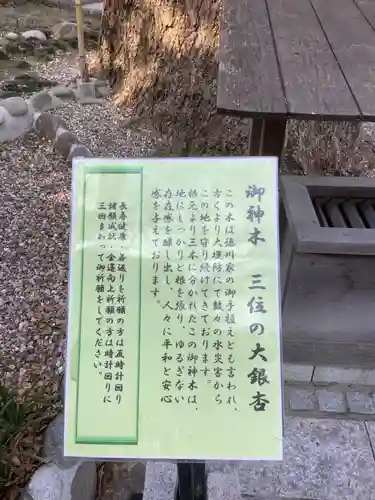 御神木　三位の大銀杏
この木は徳川家の御手植えとも言われ、
古くより大堤防にて数々の水災害から
この地を守り続けてきております。
根元より三本に分かれたこの御神木は、
地にしっかりと根を張り、ゆるぎない
存在感を醸し出し、人々に平和と安心
感を与えております。
長寿健康・善返りを祈願の方は反時計回り
諸願成就・金運向上祈願の方は時計回りに
三回まわって御祈願をしてください。